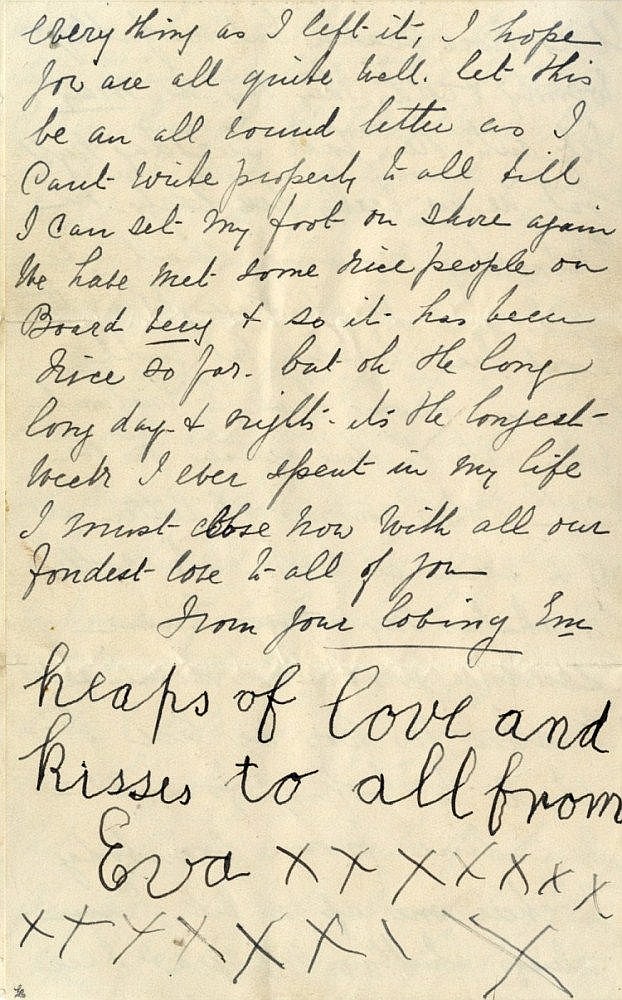 everything as I left it, I hope
you are all quite well. let this
be an all round letter as I
Cant write properly to all till
I can set my foot on shore again
We have met some nice people on
Board Lucy & so it has been
nice so far. but oh the long
long day & nights its the longest
week I ever spent in my life
I must close now with all our
fondest love to all of you
From your loving Em
heaps of love and
kisses to all from
Eva x x x x x x x
x x x x x x \ x